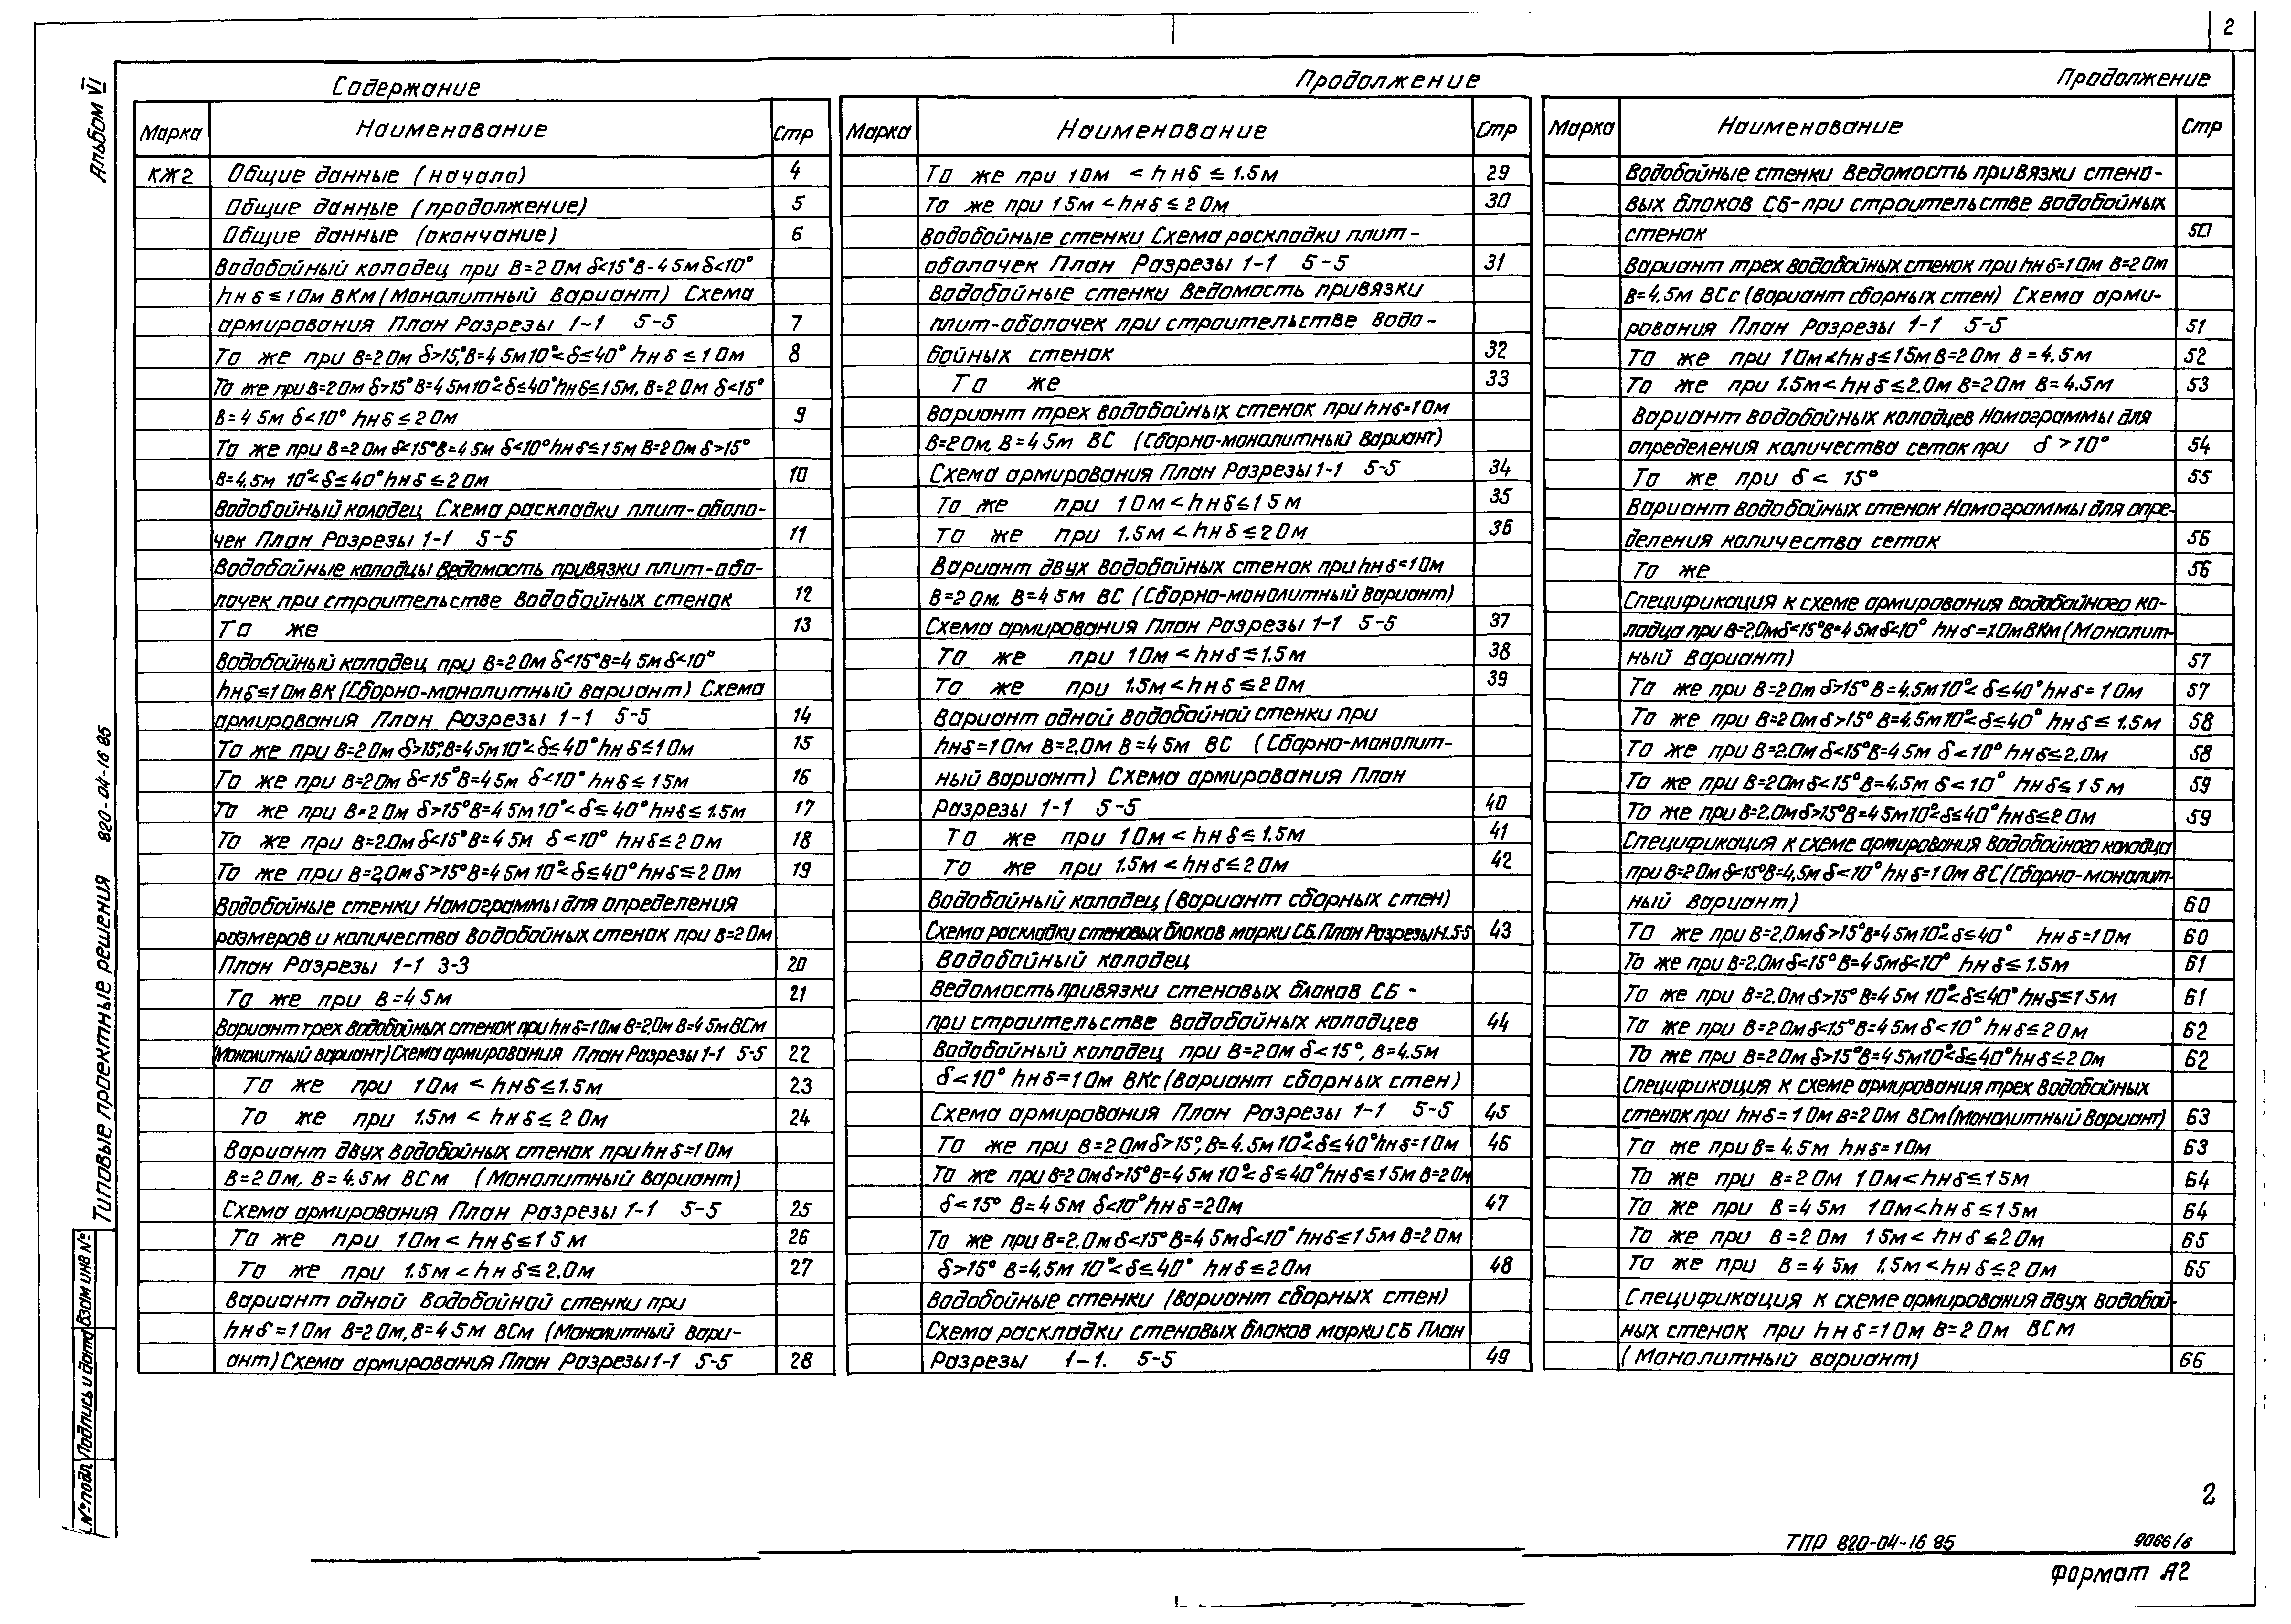 2
Альбом VI
Типовые проектные решения 820-04-16 85
Взам инв №
Подпись и дата
№ подл.
Содержание
Марка Наименование Стр
КЖ2 Общие данные (начало) 4
Общие данные (продолжение) 5
Общие данные (окончание) 6
Водобойный колодец при В=2 0м δ<15° В-4 5м δ<10°
hнб ≤ 1 0м ВКм (Монолитный вариант) Схема
армирования План Разрезы 1-1 5-5 7
То же при В=2 0м δ>15°, В=4 5м 10°<δ≤40° hнб ≤ 1 0м 8
То же при В=2 0м δ>15° В=4 5м 10°<δ≤40° hнб ≤ 1 5м, В=2 0м δ<15°
В=4 5м δ<10° hнб ≤ 2 0м 9
То же при В=2 0м δ<15° В=4 5м δ<10° hнб ≤ 1 5м В=2 0м δ>15°
В=4,5м 10°<δ≤40° hнб ≤ 2 0м 10
Водобойный колодец Схема раскладки плит-оболо-
чек План Разрезы 1-1 5-5 11
Водобойные колодцы Ведомость привязки плит-обо-
лочек при строительстве водобойных стенок 12
То же 13
Водобойный колодец при В=2 0м δ<15° В=4 5м δ<10°
hнб ≤ 1 0м ВК (Сборно-монолитный вариант) Схема
армирования План Разрезы 1-1 5-5 14
То же при В=2 0м δ>15° В=4 5м 10°<δ≤40° hнб ≤ 1 0м 15
То же при В=2 0м δ<15° В=4 5м δ<10° hнб ≤ 1 5м 16
То же при В=2 0м δ>15° В=4 5м 10°<δ≤40° hнб ≤ 1.5м 17
То же при В=2.0м δ<15° В=4 5м δ<10° hнб ≤ 2 0м 18
То же при В=2,0м δ>15° В=4 5м 10°<δ≤40° hнб ≤ 2 0м 19
Водобойные стенки Номограммы для определения
размеров и количества водобойных стенок при В=2 0м
План Разрезы 1-1 3-3 20
То же при В=4 5м 21
Вариант трех водобойных стенок при hнб=1 0м В=2,0м В=4 5м ВСм
(Монолитный вариант) Схема армирования План Разрезы 1-1 5-5 22
То же при 1 0м < hнб ≤ 1.5м 23
То же при 1.5м < hнб ≤ 2 0м 24
Вариант двух водобойных стенок при hнб=1 0м
В=2 0м, В=4.5м ВСм (Монолитный вариант)
Схема армирования План Разрезы 1-1 5-5 25
То же при 1 0м < hнб ≤ 1 5м 26
То же при 1.5м < hнб ≤ 2.0м 27
Вариант одной водобойной стенки при
hнб=1 0м В=2 0м, В=4 5м ВСм (Монолитный вари-
ант) Схема армирования План Разрезы 1-1 5-5 28
Продолжение
Марка Наименование Стр
То же при 1 0м < hнб ≤ 1.5м 29
То же при 1 5м < hнб ≤ 2 0м 30
Водобойные стенки Схема раскладки плит-
оболочек План Разрезы 1-1 5-5 31
Водобойные стенки Ведомость привязки
плит-оболочек при строительстве водо-
бойных стенок 32
То же 33
Вариант трех водобойных стенок при hнб=1 0м
В=2 0м, В=4 5м ВС (Сборно-монолитный вариант)
Схема армирования План Разрезы 1-1 5-5 34
То же при 1 0м < hнб ≤ 1 5м 35
То же при 1.5м < hнб ≤ 2 0м 36
Вариант двух водобойных стенок при hнб=1 0м
В=2 0м, В=4 5м ВС (Сборно-монолитный вариант)
Схема армирования План Разрезы 1-1 5-5 37
То же при 1 0м < hнб ≤ 1.5м 38
То же при 1.5м < hнб ≤ 2 0м 39
Вариант одной водобойной стенки при
hнб=1 0м В=2,0м В=4 5м ВС (Сборно-монолит-
ный вариант) Схема армирования План
Разрезы 1-1 5-5 40
То же при 1 0м < hнб ≤ 1.5м 41
То же при 1.5м < hнб ≤ 2 0м 42
Водобойный колодец (вариант сборных стен)
Схема раскладки стеновых блоков марки СБ. План Разрезы 1-1. 5-5 43
Водобойный колодец
Ведомость привязки стеновых блоков СБ -
при строительстве водобойных колодцев 44
Водобойный колодец при В=2 0м δ<15°, В=4.5м
δ<10° hнб=1 0м ВКс (вариант сборных стен)
Схема армирования План Разрезы 1-1 5-5 45
То же при В=2 0м δ>15°, В=4.5м 10°<δ≤40° hнб=1 0м 46
То же при В=2 0м δ>15° В=4 5м 10°<δ≤40° hнб ≤ 1 5м В=2 0м
δ<15° В=4 5м δ<10° hнб=2 0м 47
То же при В=2.0м δ<15° В=4 5м δ<10° hнб ≤ 1 5м В=2 0м
δ>15° В=4,5м 10°<δ≤40° hнб ≤ 2 0м 48
Водобойные стенки (вариант сборных стен)
Схема раскладки стеновых блоков марки СБ План
Разрезы 1-1. 5-5 49
Продолжение
Марка Наименование Стр
Водобойные стенки Ведомость привязки стено-
вых блоков СБ-при строительстве водобойных
стенок 50
Вариант трех водобойных стенок при hнб=1 0м В=2 0м
В=4,5м ВСс (вариант сборных стен) Схема арми-
рования План Разрезы 1-1 5-5 51
То же при 1 0м < hнб ≤ 1 5м В=2 0м В=4.5м 52
То же при 1.5м < hнб ≤ 2.0м В=2 0м В=4.5м 53
Вариант водобойных колодцев Номограммы для
определения количества сеток при δ > 10° 54
То же при δ < 15° 55
Вариант водобойных стенок Номограммы для опре-
деления количества сеток 56
То же 56
Спецификация к схеме армирования водобойного ко-
лодца при В=2,0м δ<15° В=4 5м δ<10° hнб=1.0м ВКм (Монолит-
ный вариант) 57
То же при В=2 0м δ>15° В=4,5м 10°<δ≤40° hнб=1 0м 57
То же при В=2 0м δ>15° В=4,5м 10°<δ≤40° hнб ≤ 1.5м 58
То же при В=2.0м δ<15° В=4.5м δ<10° hнб ≤ 2.0м 58
То же при В=2 0м δ<15° В=4,5м δ<10° hнб ≤ 1 5м 59
То же при В=2.0м δ>15° В=4 5м 10°<δ≤40° hнб ≤ 2 0м 59
Спецификация к схеме армирования водобойного колодца
при В=2 0м δ<15° В=4,5м δ<10° hнб=1 0м ВС (Сборно-монолит-
ный вариант) 60
То же при В=2,0м δ>15° В=4 5м 10°<δ≤40° hнб=1 0м 60
То же при В=2.0м δ<15° В=4 5м δ<10° hнб ≤ 1.5м 61
То же при В=2,0м δ>15° В=4 5м 10°<δ≤40° hнб ≤ 1 5м 61
То же при В=2 0м δ<15° В=4 5м δ<10° hнб ≤ 2 0м 62
То же при В=2 0м δ>15° В=4 5м 10°<δ≤40° hнб ≤ 2 0м 62
Спецификация к схеме армирования трех водобойных
стенок при hнб=1 0м В=2 0м ВСм (Монолитный вариант) 63
То же при В=4.5м hнб=1 0м 63
То же при В=2 0м 1 0м < hнб ≤ 1 5м 64
То же при В=4 5м 1 0м < hнб ≤ 1 5м 64
То же при В=2 0м 1 5м < hнб ≤ 2 0м 65
То же при В=4 5м 1.5м < hнб ≤ 2 0м 65
Спецификация к схеме армирования двух водобой-
ных стенок при hнб=1 0м В=2 0м ВСм
(Монолитный вариант) 66
2
ТПР 820-04-16 85 9066/6
Формат А2